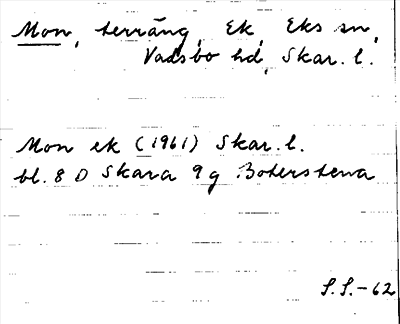 Mon, terräng, Ek, Eks sn,
Vadsbo hd, Skar. l.
Mon ek (1961) Skar. l.
bl. 8 D Skara 9 g Boterstena
S.S.-62